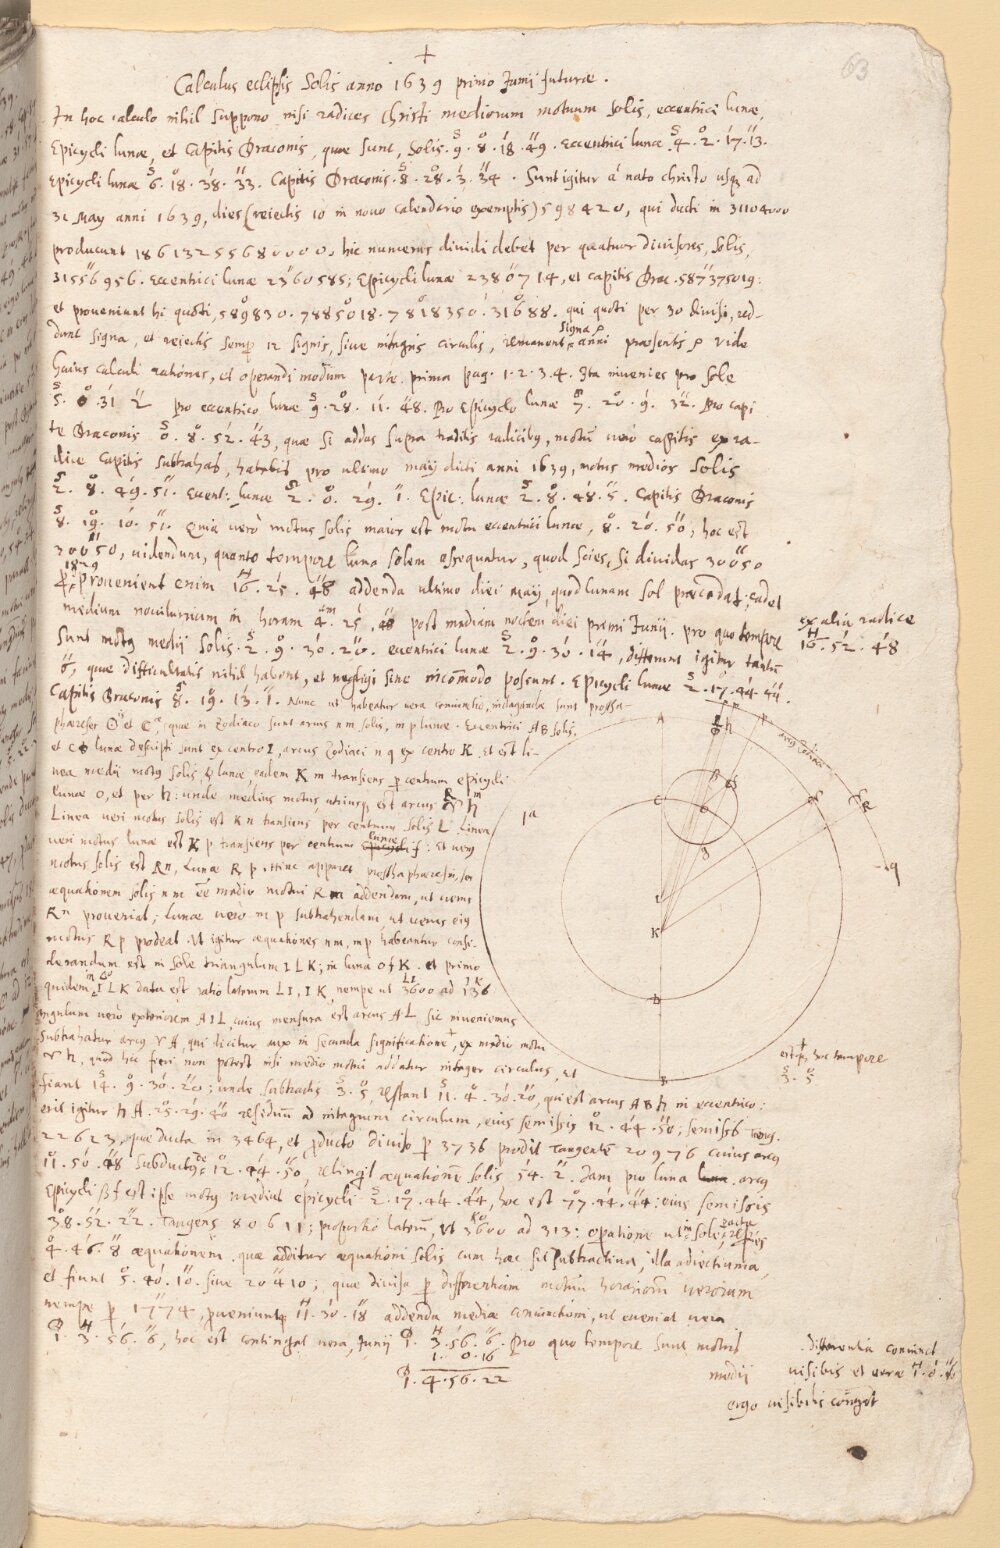 63
Calculus eclipsis Solis anno 1639 primo Junii futurae.
In hoc calculo nihil suppono nisi radices Christi mediorum motuum solis, eccentrici lunae,
Epicycli lunae, et Capitis Draconis, quae sunt, Solis. 9. 8. 18. 49. Eccentrici lunae 4. 2. 17. 13.
Epicycli lunae 6. 18. 38. 33. Capitis Draconis. 8. 28. 3. 34. Sunt igitur à nato christo usq ad
31 May anni 1639, dies (reiectis 10 in novo calendario exemptis) 598420, qui ducti in 31104000
producunt 18613255680000. hic numerus dividi debet per quatuor divisores, Solis,
31556956. Eccentrici lunae 2360585; Epicycli lunae 2380714, et capitis Drac. 587375019:
et proveniunt hi quoti, 589830. 7885018. 7818350. 31688. qui quoti per 30 divisi, red-
dunt signa, et reiectis semper 12 signis, sive integris circulis, remanent signa anni praesentis vide
huius calculi rationes, et operandi modum parte prima pag. 1. 2. 3. 4. Ita invenies pro sole
5. 0. 31 2 pro eccentrico lunae 9. 28. 11. 48. Pro Epicyclo lunae 7. 20. 9. 32. Pro capi
te Draconis 0. 8. 52. 43, quae si addas supra traditis radicibus, motum vero capitis ex ra-
dice Capitis subtrahas, habebis pro ultimo maij dicti anni 1639, motus medios Solis
2. 8. 49. 51. Eccent: lunae 2. 0. 29. 1. Epic: lunae 2. 8. 48. 5. Capitis Draconis
8. 19. 10. 51. Quia verò motus solis maior est motu eccentrici lunae, 8. 20. 50, hoc est
30050, videndum, quanto tempore luna solem assequatur, quod scies, si dividas 30050
per 1829 provenient enim 16. 25. 48 addenda ultimo diei maij, quod lunam sol praecedat; cadet
medium novilunium in horam 4. 25. 48 post mediam noctem diei primi Junii. pro quo tempore
ex alia radice
16. 52. 48
sunt motus medii Solis. 2. 9. 30. 20. eccentrici lunae 2. 9. 30. 14, differunt igitur tantum
6, quae difficultatis nihil habent, et negligi sine incommodo possunt. Epicycli lunae 2. 17. 44. 44.
Capitis Draconis 8. 19. 13. 1. Nunc ut habeatur vera coniunctio, indagandae sunt prostha-
phaereses, quae in Zodiaco sunt arcus nm solis, mp lunae. Eccentrici AB solis,
et CD lunae descripti sunt ex centro I, arcus Zodiaci nq ex centro K. Et est li-
nea medii motus solis, & lunae, eadem Km transiens per centrum epicycli
lunae O, et per h: unde medius motus utriusq est arcus
Linea veri motus solis est Kn transiens per centrum solis L. Linea
veri motus lunae est Kp transiens per centrum lunae f: Et verus
motus solis est Rn, Lunae Rp. Hinc apparet prosthaphaeresin, seu
aequationem solis nm esse medio motui Rm addendam, ut verus
Rn proveniat; lunae vero mp subtrahendam ut verus eius
motus Rp prodeat. Ut igitur aequationes nm, mp habeantur consi-
derandum est in sole triangulum ILK; in luna OfK. Et primo
quidem in ILK data est ratio laterum LI, IK, nempe ut 3600 ad 136
angulum vero exteriorem AIL, cuius mensura est arcus AL sic inveniemus
Subtrahatur arcus ♈A, qui dicitur aux in secunda significatione, ex medio motu
♈h, quod hic fieri non potest nisi medio motui addatur integer circulus, et
est, hoc tempore
3. 5
fiant 14. 9. 30. 20; unde subtractis 3. 5, restant 11. 4. 30. 20, qui est arcus ABh in eccentrico;
erit igitur hA. 25. 29. 40 residuum ad integrum circulum, eius semissis 12. 44. 50; semissis tang.
22623, quae ducta in 3464, et producto diviso per 3736 prodit tangentem 20976 cuius arcus
11. 50. 48 subductus de 12. 44. 50, relinquit aequationem solis 54. 2. Iam pro luna arcus
Epicycli βf est ipse motus medius epicycli 2. 17. 44. 44, hoc est 77. 44. 44: eius semissis
38. 52. 22. Tangens 80611; proportio laterum, ut 3600 ad 313: operatione ut in sole facta,
4. 46. 8 aequationem. quae additur aequationi solis cum haec sit subtractiva, illa adiectiva,
et fiunt 5. 40. 10. sive 20410; quae divisa per differentiam motuum horariorum verorum
nempe per 1774, proveniunt 11. 30. 18 addenda mediae coniunctioni, ut eveniat vera
1. 3. 56. 6, hoc est contingat vera, Junii 1. 3. 56. 6. Pro quo tempore sunt motus
1. 0. 16
1. 4. 56. 22
medii
differentia coniunct.
visibilis et verae 1. 0. 16
ergo visibilis contiget